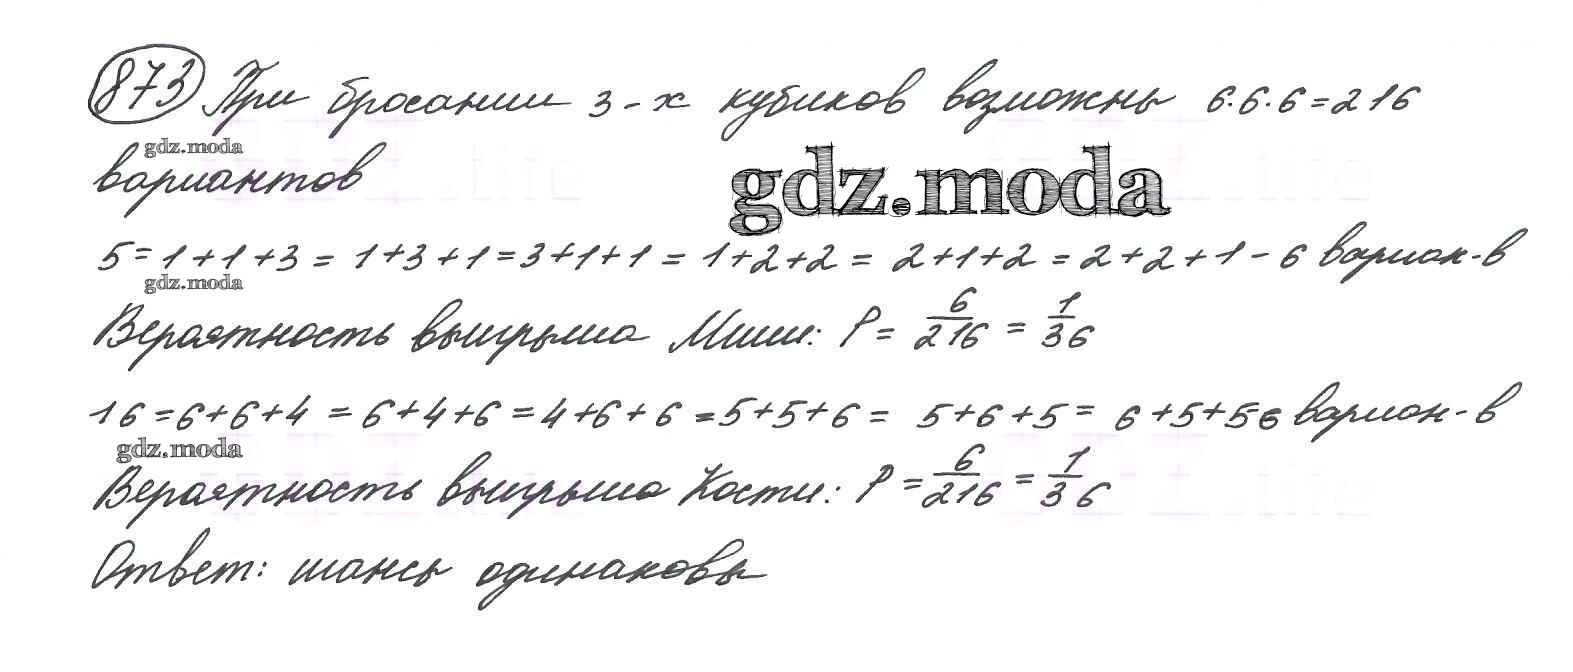 873 При бросании 3-х кубиков возможны 6·6·6=216
gdz.moda
вариантов
gdz.moda
5=1+1+3=1+3+1=3+1+1=1+2+2=2+1+2=2+2+1-6 вариан-в
gdz.moda
Вероятность выигрыша Миши: P=6/216=1/36
16=6+6+4=6+4+6=4+6+6=5+5+6=5+6+5=6+5+5-6 вариан-в
gdz.moda
Вероятность выигрыша Кости: P=6/216=1/36
Ответ: шансы одинаковы